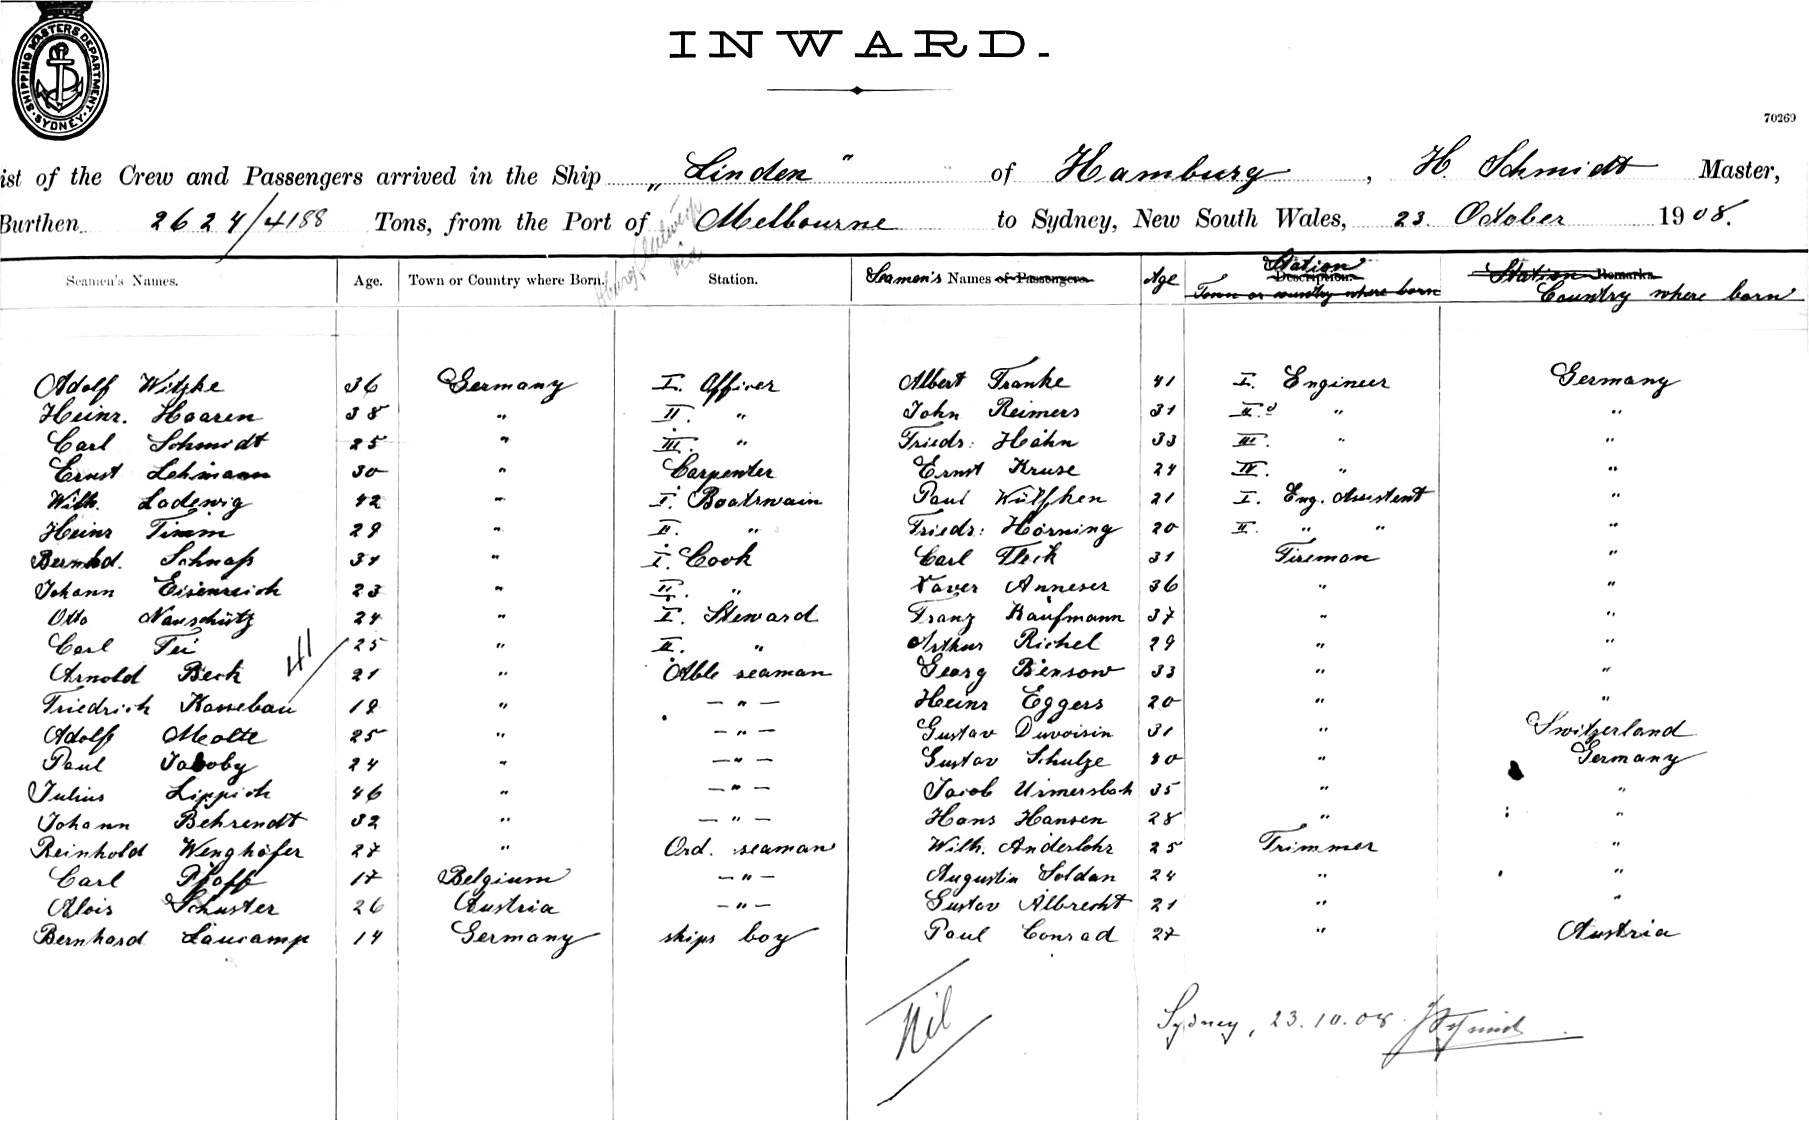 SHIPPING MASTERS DEPARTMENT · SYDNEY ·
INWARD.
70269
ist of the Crew and Passengers arrived in the Ship „Linden" of Hamburg, H. Schmidt Master,
Burthen 2624/4188 Tons, from the Port of Melbourne to Sydney, New South Wales, 23. October 1908.
Seamen's Names. Age. Town or Country where Born. Station. Seamen's Names of Passengers. Age Station Description. Town or country where born Station Remarks. Country where born
Adolf Witzke 36 Germany I. Officer Albert Franke 41 I. Engineer Germany
Heinr. Haaren 38 " II. " John Reimers 31 II.d " "
Carl Schmidt 25 " III. " Friedr: Hahn 33 III. " "
Ernst Lehmann 30 " Carpenter Ernst Kruse 24 IV. " "
Wilh. Ladewig 42 " I. Boatswain Paul Wülfken 21 I. Eng. Assistent "
Heinr Timm 29 " II. " Friedr: Hörning 20 II. " " "
Bernhd. Schnaß 31 " I. Cook Carl Fleck 31 Fireman "
Johann Eisenreich 23 " II. " Xaver Anneser 36 " "
Otto Nauschütz 24 " I. Steward Franz Kaufmann 37 " "
Carl Fei 25 " II. " Arthur Richel 29 " "
41
Arnold Beck 21 " Able seaman Georg Bensow 33 " "
Friedrich Kassebau 19 " — " — Heinr Eggers 20 " "
Adolf Malte 25 " — " — Gustav Duvoisin 31 " Switzerland
Paul Jacoby 24 " — " — Gustav Schulze 40 " Germany
Julius Lippich 46 " — " — Jacob Urmersbach 35 " "
Johann Behrendt 32 " — " — Hans Hansen 28 " "
Reinhold Wenghöfer 27 " Ord. seaman Wilh. Anderlohr 25 Trimmer "
Carl Pfaff 17 Belgium — " — Augustin Soldan 24 " "
Alois Schuster 26 Austria — " — Gustav Albrecht 21 " "
Bernhard Laucamp 14 Germany ships boy Paul Conrad 27 " Austria
Nil
Sydney, 23.10.08.